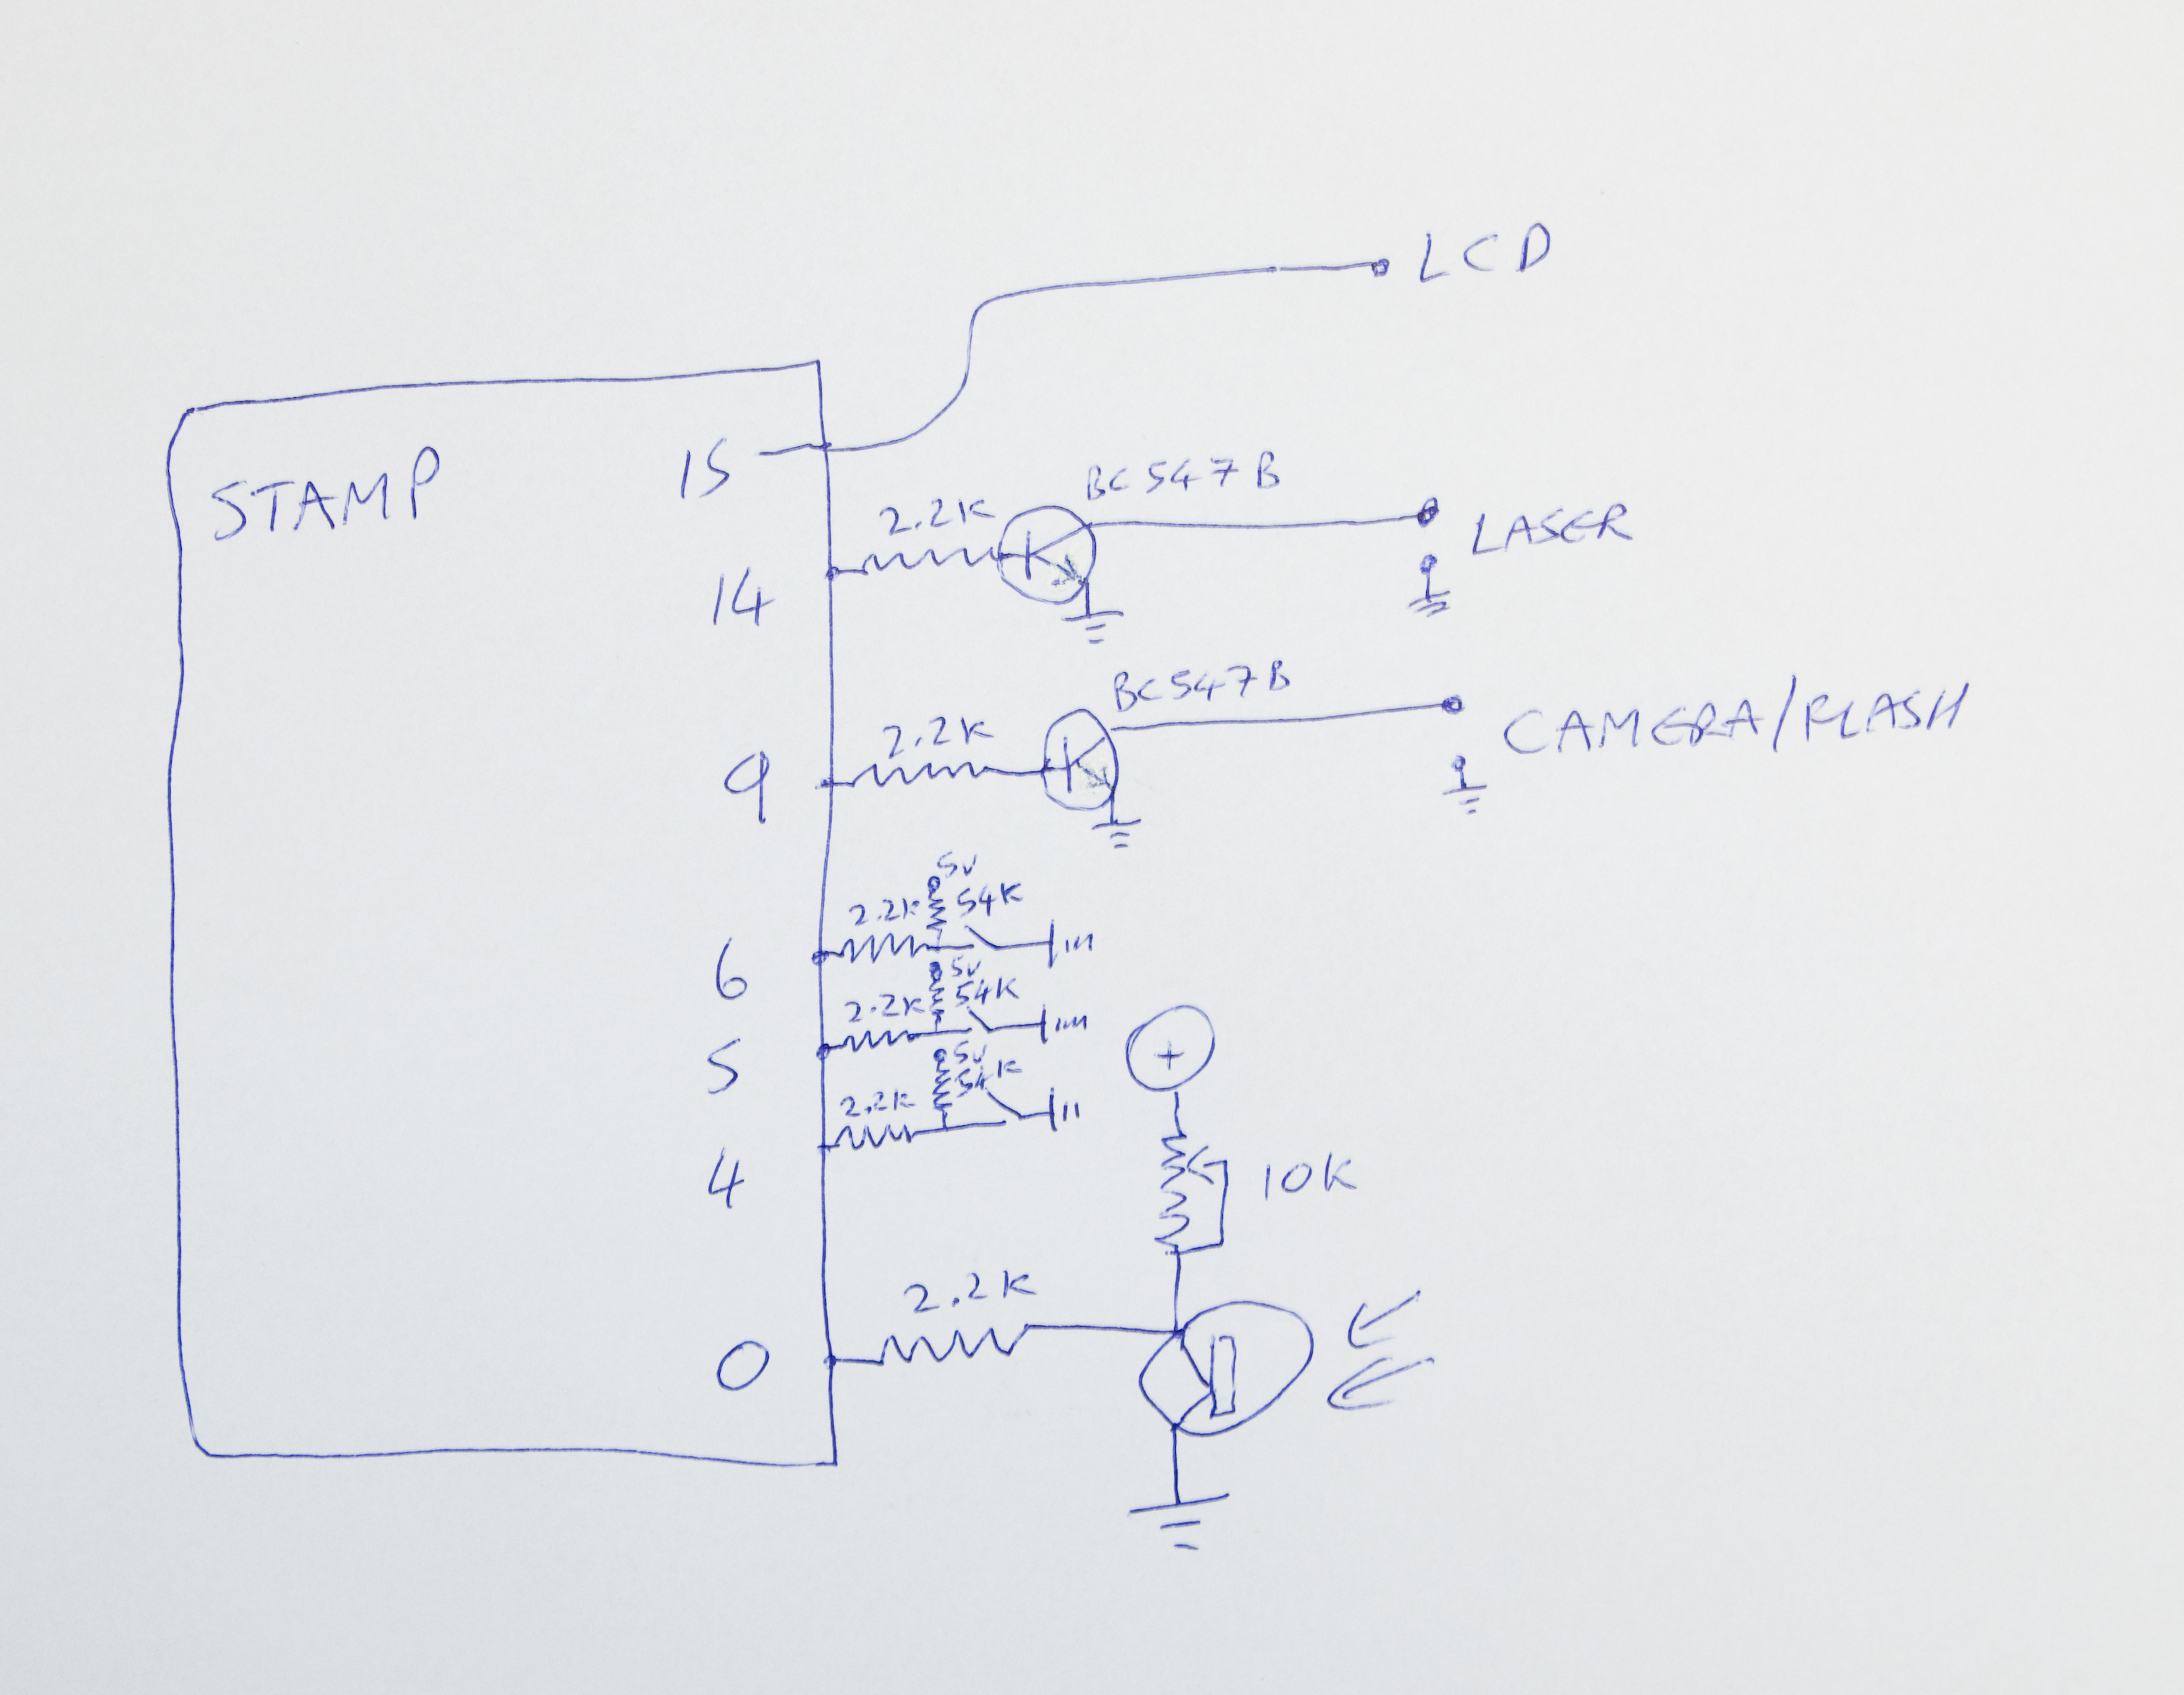 LCD
15
STAMP
BC547B
2.2K
LASER
14
BC547B
CAMERA/FLASH
2.2K
9
5V
54K
2.2K
6
5V
54K
2.2K
5
5V
54K
2.2K
4
+
10K
2.2K
0